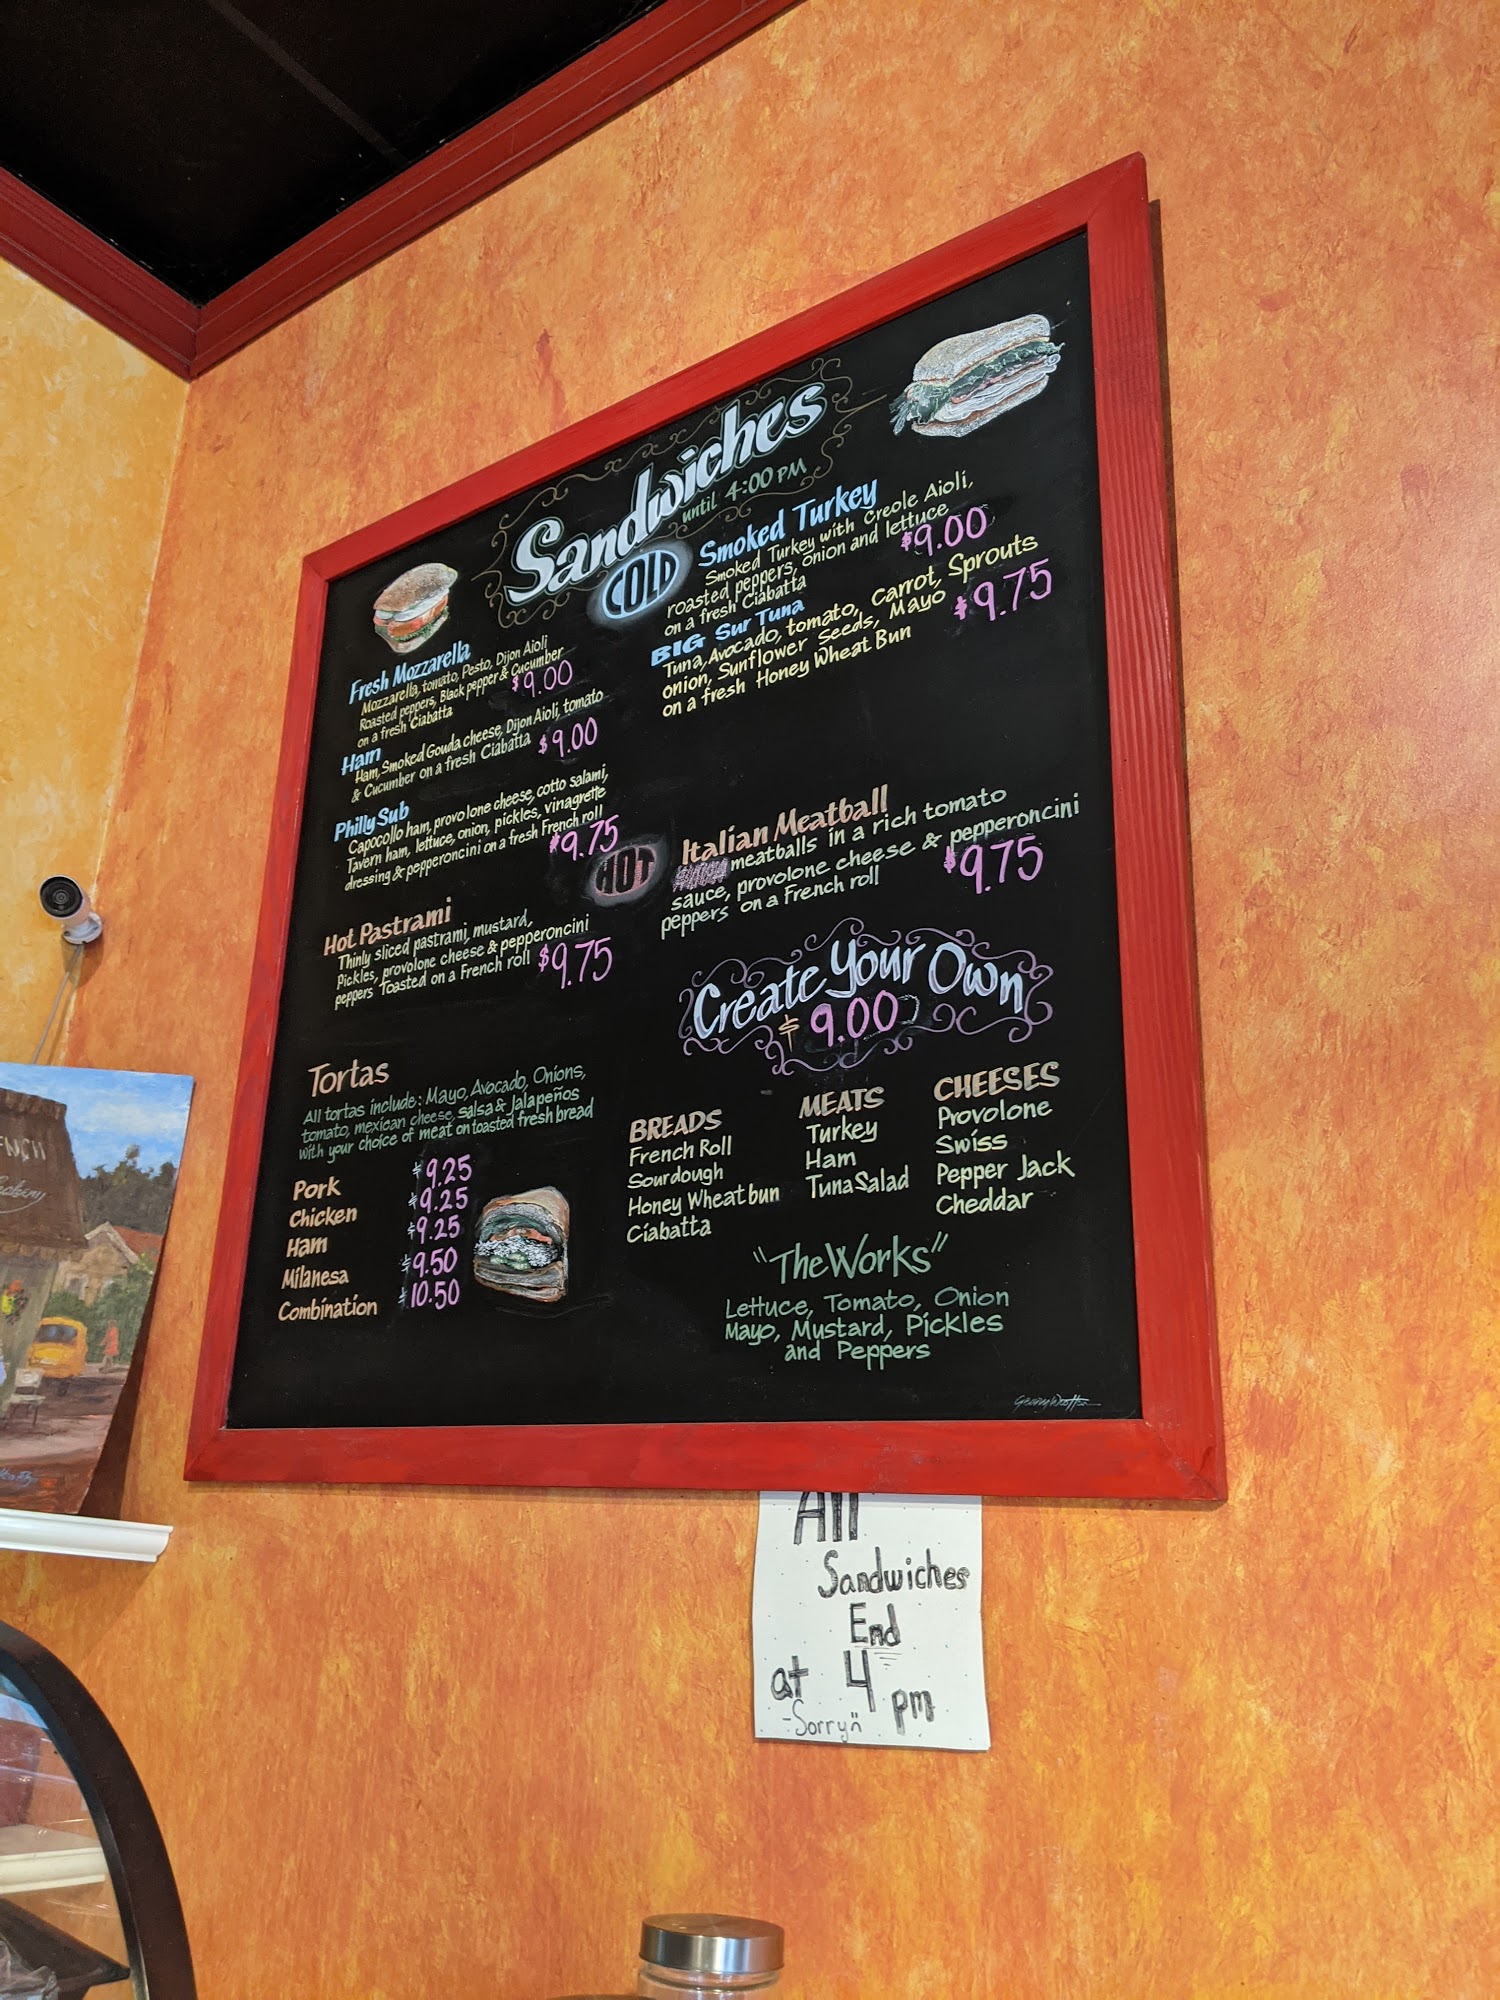 Sandwiches
until 4:00 PM
COLD
Fresh Mozzarella
Mozzarella, tomato, Pesto, Dijon Aioli
Roasted peppers, Black pepper & Cucumber
on a fresh Ciabatta
$9.00
Ham
Ham, Smoked Gouda cheese, Dijon Aioli, tomato
& Cucumber on a fresh Ciabatta $9.00
Philly Sub
Capocollo ham, provolone cheese, cotto salami,
Tavern ham, lettuce, onion, pickles, vinagrette
dressing & pepperoncini on a fresh French roll
$9.75
Smoked Turkey
Smoked Turkey with Creole Aioli,
roasted peppers, onion and lettuce
on a fresh Ciabatta
$9.00
BIG Sur Tuna
Tuna, Avocado, tomato, Carrot, Sprouts
onion, Sunflower Seeds, Mayo
on a fresh Honey Wheat Bun
$9.75
HOT
Hot Pastrami
Thinly sliced pastrami, mustard,
Pickles, provolone cheese & pepperoncini
peppers Toasted on a French roll $9.75
Italian Meatball
meatballs in a rich tomato
sauce, provolone cheese & pepperoncini
peppers on a French roll
$9.75
Tortas
All tortas include: Mayo, Avocado, Onions,
tomato, mexican cheese, salsa & Jalapeños
with your choice of meat on toasted fresh bread
Pork $9.25
Chicken $9.25
Ham $9.25
Milanesa $9.50
Combination $10.50
Create Your Own
$9.00
BREADS
French Roll
Sourdough
Honey Wheat bun
Ciabatta
MEATS
Turkey
Ham
Tuna Salad
CHEESES
Provolone
Swiss
Pepper Jack
Cheddar
"The Works"
Lettuce, Tomato, Onion
Mayo, Mustard, Pickles
and Peppers
All
Sandwiches
End
at 4 pm
-Sorry"